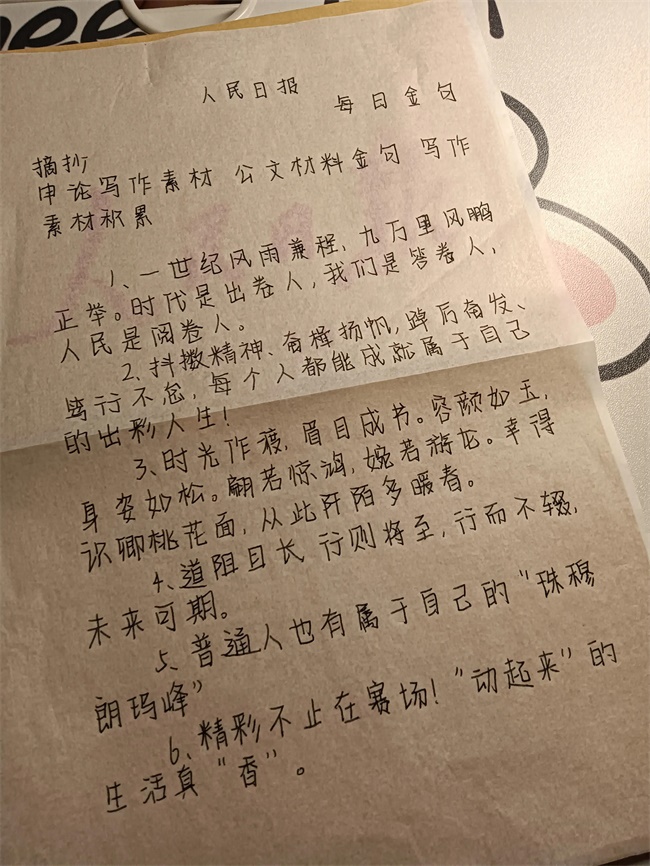 人民日报
每日金句
摘抄
申论写作素材 公文材料金句 写作
素材积累
1、一世纪风雨兼程，九万里风鹏
正举。时代是出卷人，我们是答卷人，
人民是阅卷人。
2、抖擞精神、奋楫扬帆，踔厉奋发、
笃行不怠，每个人都能成就属于自己
的出彩人生！
3、时光作渡，眉目成书。容颜如玉，
身姿如松。翩若惊鸿，婉若游龙。幸得
识卿桃花面，从此阡陌多暖春。
4、道阻且长 行则将至，行而不辍，
未来可期。
5、普通人也有属于自己的“珠穆
朗玛峰”
6、精彩不止在赛场！“动起来”的
生活真“香”。